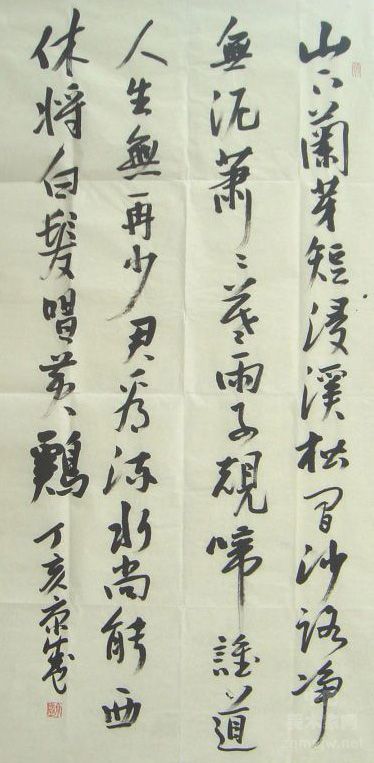 山下蘭芽短浸溪松間沙路净
無泥蕭〻暮雨子規啼誰道
人生無再少君看流水尚能西
休將白髮唱黄鷄 丁亥